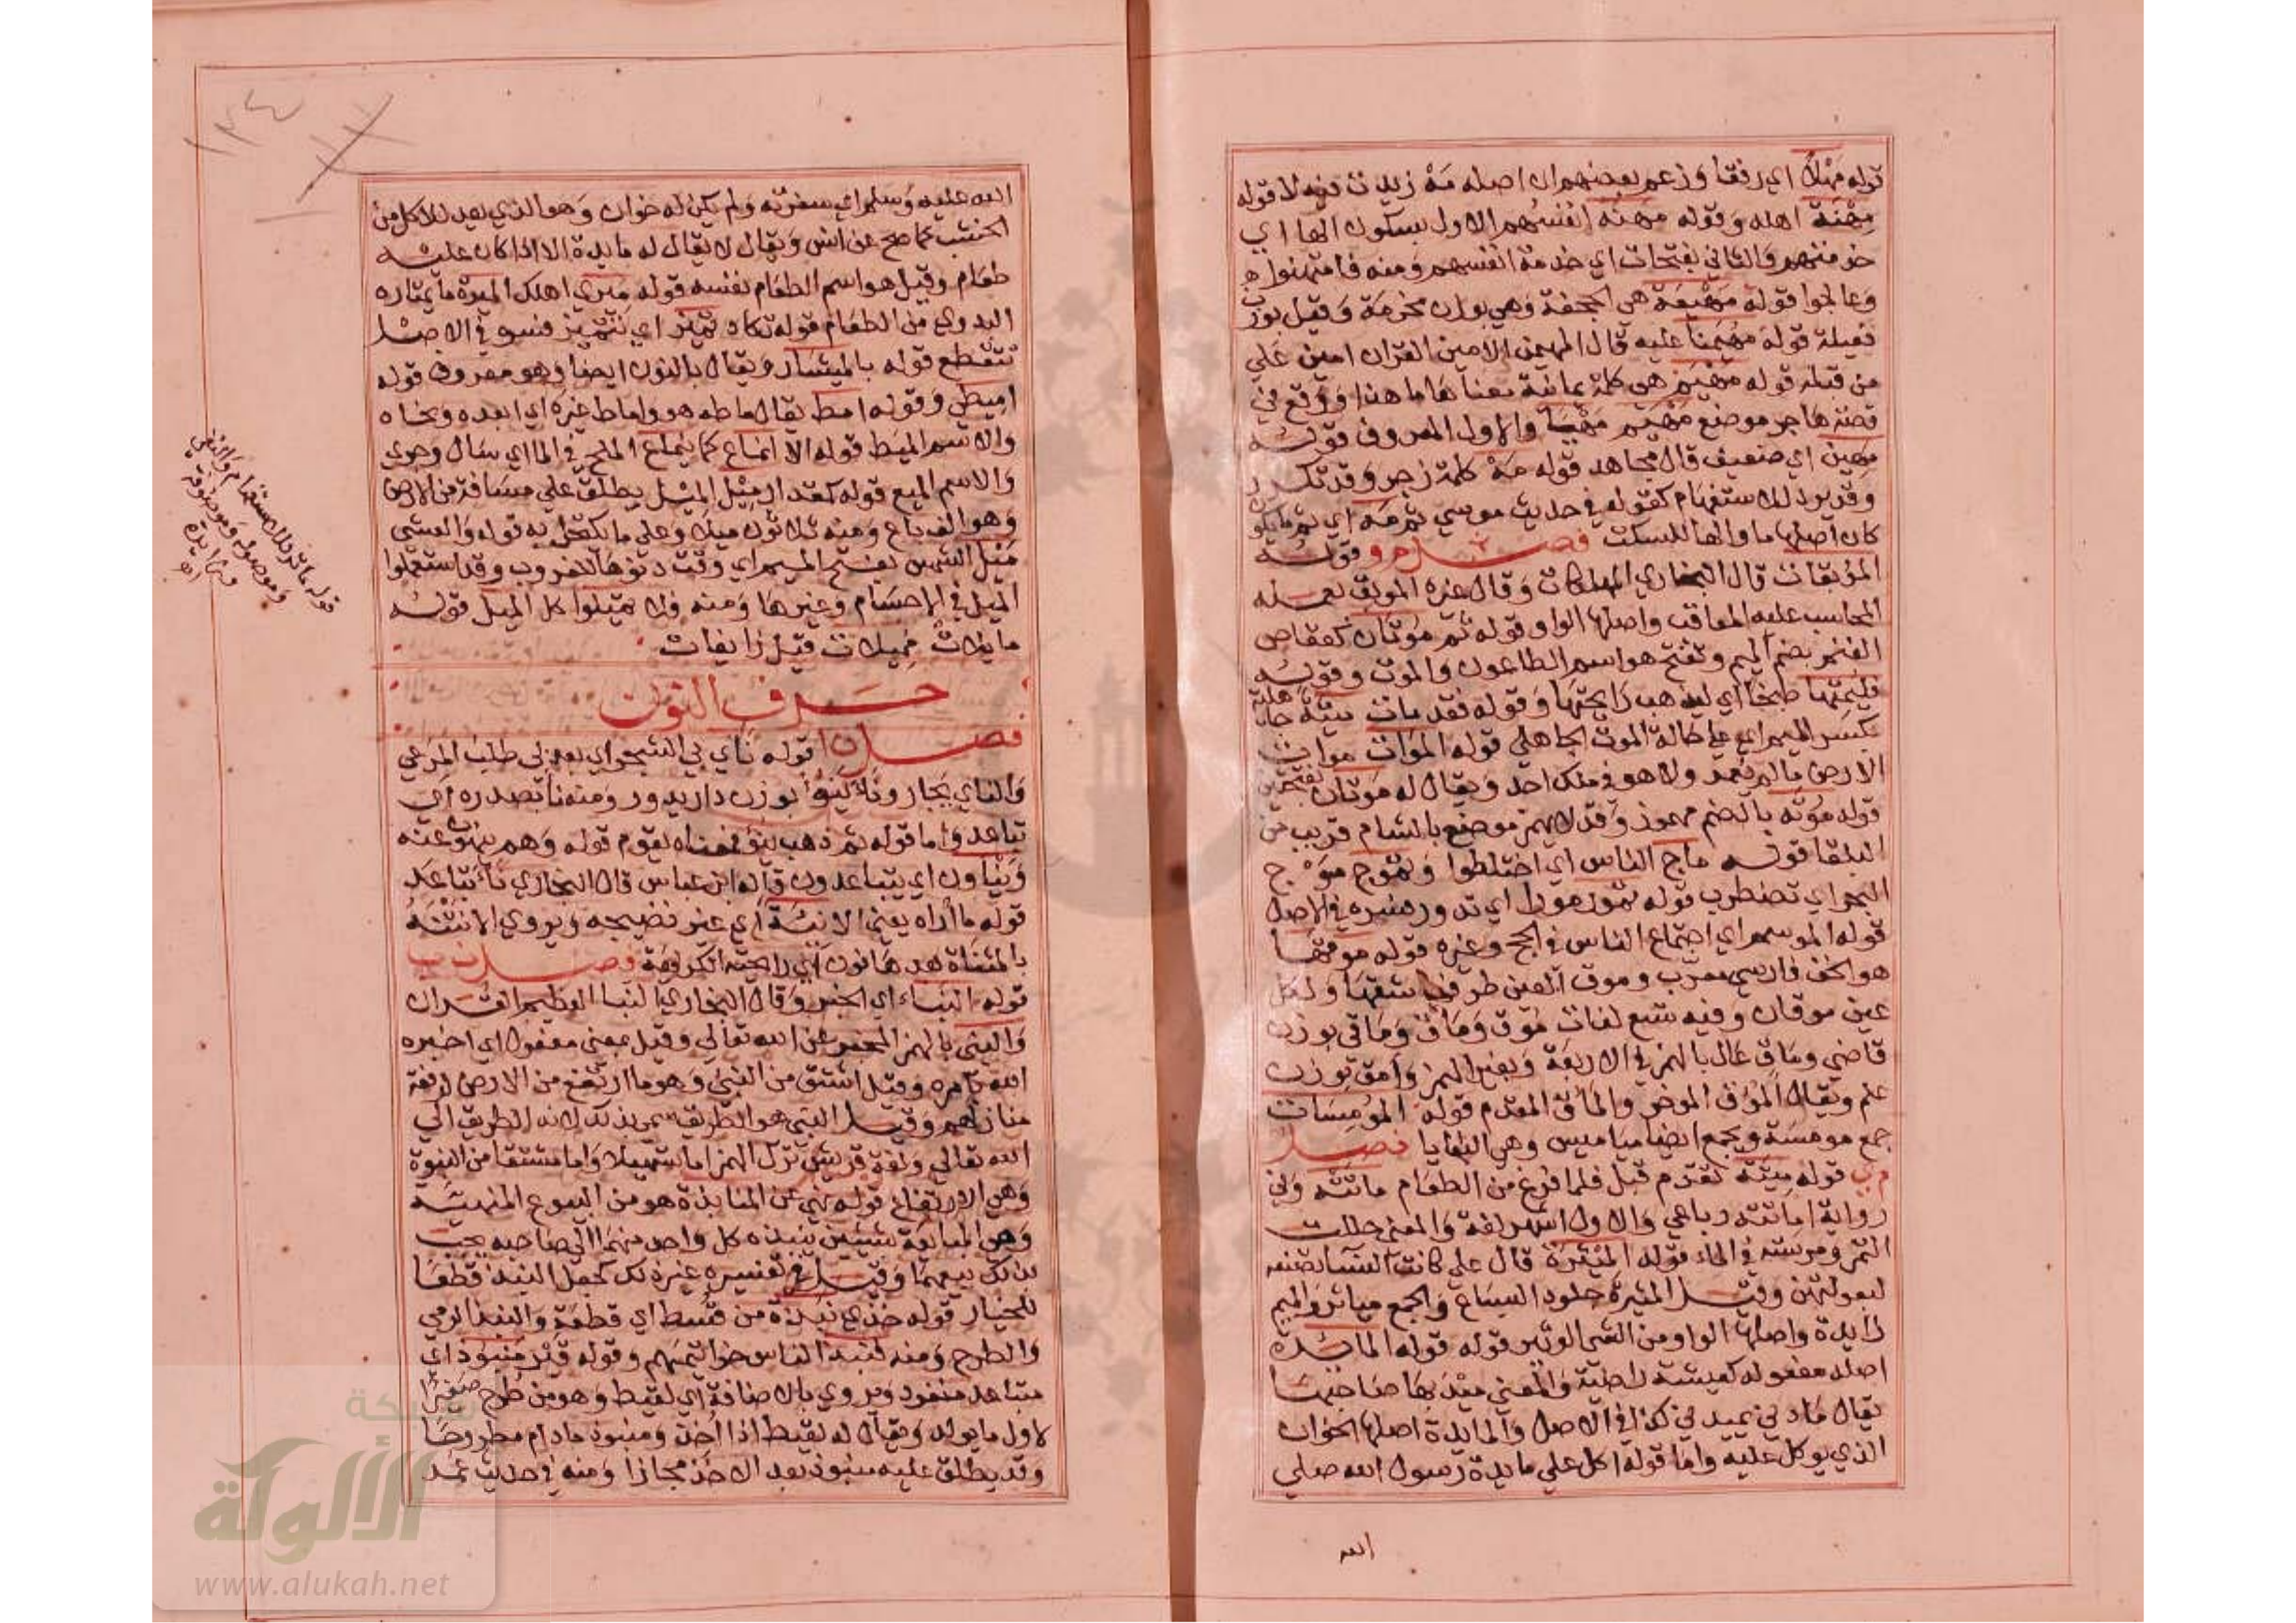 قوله مهلا اي رفقا وزعم بعضهم ان اصله مه زيدت فيه لا قوله
مهنة اهله وقوله مهنه انفسهم الاول بسكون الها اي
خدمتهم والثاني بفتحات اي خدمة انفسهم ومنه فامتهنوا
وعالجوا قوله مهيعة هي الجحفة وهي بوزن مخرمة وقيل بوزن
فعيلة قوله مهيمنا عليه قال المهيمن الامين القران امين علي
من قبله قوله مهيم هي كلمة يمانية معناها ما هذا ووقع في
قصة هاجر موضع مهيم مهيا والاول المعروف قوله
مهين اي ضعيف قال مجاهد قوله مه كلمة زجر وقد تكرر
وقد يرد للاستفهام كقوله في حديث موسي ثم مه اي ثم ما يكون
كان اصلها ما والها للسكت فصل م و قوله
الموبقات قال البخاري المهلكات وقال غيره الموبق بعمله
المحاسب عليه المعاقب واصلها الواو قوله ثم موتان كعقاص
الغنم بضم الميم وتفتح هو اسم الطاعون والموت وقوله
فليمتها طبخا اي ليذهب رايحتها وقوله فقد مات ميتة جاهلية
بكسر الميم اي علي حالة الموت الجاهلي قوله الموات موات
الارض ما لم يعمر ولا هو في ملك احد ويقال له موتان بفتحتين
قوله موته بالضم مهموز وقد لا يهمز موضع بالشام قريب من
البلقا قوله ماج الناس اي اختلطوا وتموج موج
البحر اي تضطرب قوله تمور مورا اي تدور وغيره في الاصل
قوله الموسم اي اجتماع الناس في الحج وغيره قوله موقها
هو الخف فارسي معرب وموق العين طرفها شقها ولكل
عين موقان وفيه تسع لغات موق وماق وماقي بوزن
قاضي وماق عال بالهمز في الاربعة وبغير الهمز وامق بوزن
علم ويقال الموق الموخر والماق المقدم قوله المومسات
جمع مومسة ويجمع ايضا مياميس وهي البغايا فصل
م ي قوله ميتة تقدم قبل فلما فرغ من الطعام ماثته وفي
رواية اماثته رباعي والاول اشهر لغة والمعني حللت
التمر ومرسته في الماء قوله الميثرة قال علي كانت النسا تصنعه
لبعولتهن وقيل الميثرة جلود السباع والجمع مياثر والميم
زايدة واصلها الواو من الشي الوثير قوله قوله المائدة
اصله مفعوله كعيشة راضية والمعني ميد بها صاحبها
يقال مادني يميدني كذا في الاصل والمايدة اصلها الخوان
الذي يوكل عليه واما قوله اكل علي مايدة رسول الله صلي
الله
١٣٤
الله عليه وسلم اي سفرته ولم يكن له خوان وهو الذي يعد للاكل من
الخشب كما صح عن انس ويقال لا يقال له مايدة الا اذا كان عليه
طعام وقيل هو اسم الطعام نفسه قوله ميري اهلك الميرة ما يمتاره
البدوي من الطعام قوله تكاد تميز اي تتميز فسره في الاصل
تتقطع قوله بالميشار ويقال بالنون ايضا وهو معروف قوله
اميطي وقوله امط يقال ماطه هو واماط غيره اي ابعده ونحاه
والاسم الميط قوله الا انماع كما ينماع الملح في الما اي سال وجري
والاسم الميع قوله كمقدار ميل الميل يطلق علي مسافة من الارض
وهو الف باع ومنه ثلاثون ميلا وعلي ما يكتحل به قوله والعشي
ميل الشمس بفتح الميم اي وقت دنوها للغروب وقد استعملوا
الميل في الاجسام وغيرها ومنه ولا تميلوا كل الميل قوله
مايلات مميلات قيل زايغات
حرف النون
فصل ن ا قوله ناي بي الشجر اي بعد بي طلب المرعي
والناي يجاز وناء ينوء بوزن دار يدور ومنه نا بصدره اي
تباعد واما قوله ثم ذهب ينوء فمعناه يقوم قوله وهم ينهون عنه
ويناون اي يتباعدون قاله ابن عباس قال البخاري ناء تباعد
قوله ما اراه يعني الا نيئة اي غير نضيجه ويروي الا نتنه
بالمثناة بعدها نون اي رايحته الكريهة فصل ن ب
قوله النباء اي الخبر وقال البخاري النبا العظيم القران
والنبي بالهمز المخبر عن الله تعالي وقيل بمعني مفعول اي اخبره
الله بامره وقيل اشتق من النبي وهو ما ارتفع من الارض لرفعة
منازلهم وقيل النبي هو الطريق سمي بذلك لانه الطريق الي
الله تعالي ولغة قريش ترك الهمز اما تسهيلا واما مشتقا من النبوة
وهي الارتفاع قوله نهي عن المنابذة هو من البيوع المنهية
وهي المبايعة بشيئين ينبذه كل واحد منهما الي صاحبه يجب
بذلك بيعهما وقيل في تفسيره غير ذلك كجعل النبذ قطعا
للخيار قوله خذي نبذة من قسط اي قطعة والنبذ الرمي
والطرح ومنه فنبذ الناس خواتيمهم وقوله قبر منبوذ اي
متباعد منفرد ويروي بالاضافة اي لقيط وهو من طرح صغيرا
لاول ما يولد ويقال له لقيط اذا اخذ ومنبوذ مادام مطروحا
وقد يطلق عليه منبوذ بعد الاخذ مجازا ومنه في حديث عمر
قوله ما ترد للاستفهام والنفي
وموصوله وموصوفة
وزايدة
اهـ
شبكة
الألوكة
www.alukah.net